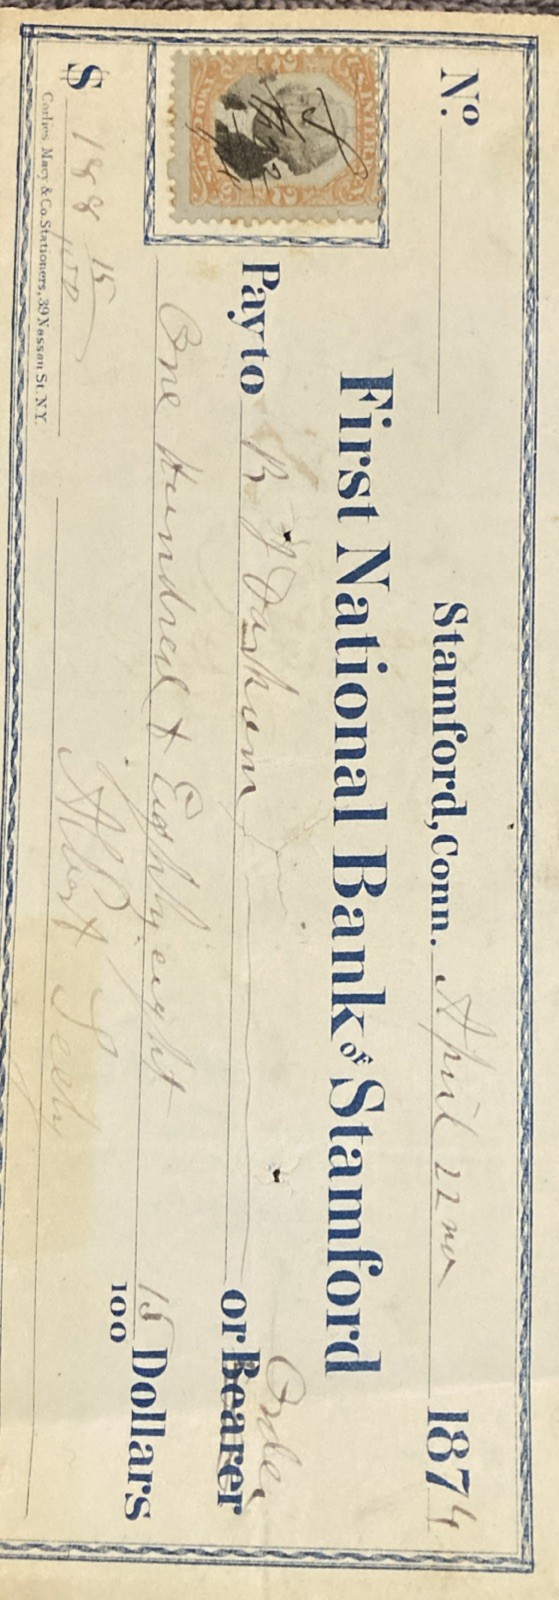 No.
Stamford, Conn. April 22nd 1874
First National Bank of Stamford
Pay to R Y Durham or Bearer Order
One Hundred & Eighty eight 15/100 Dollars
$ 188 15/100
Albert Seely
Corlies Macy & Co. Stationers, 39 Nassau St. N.Y.
U.S. INTER